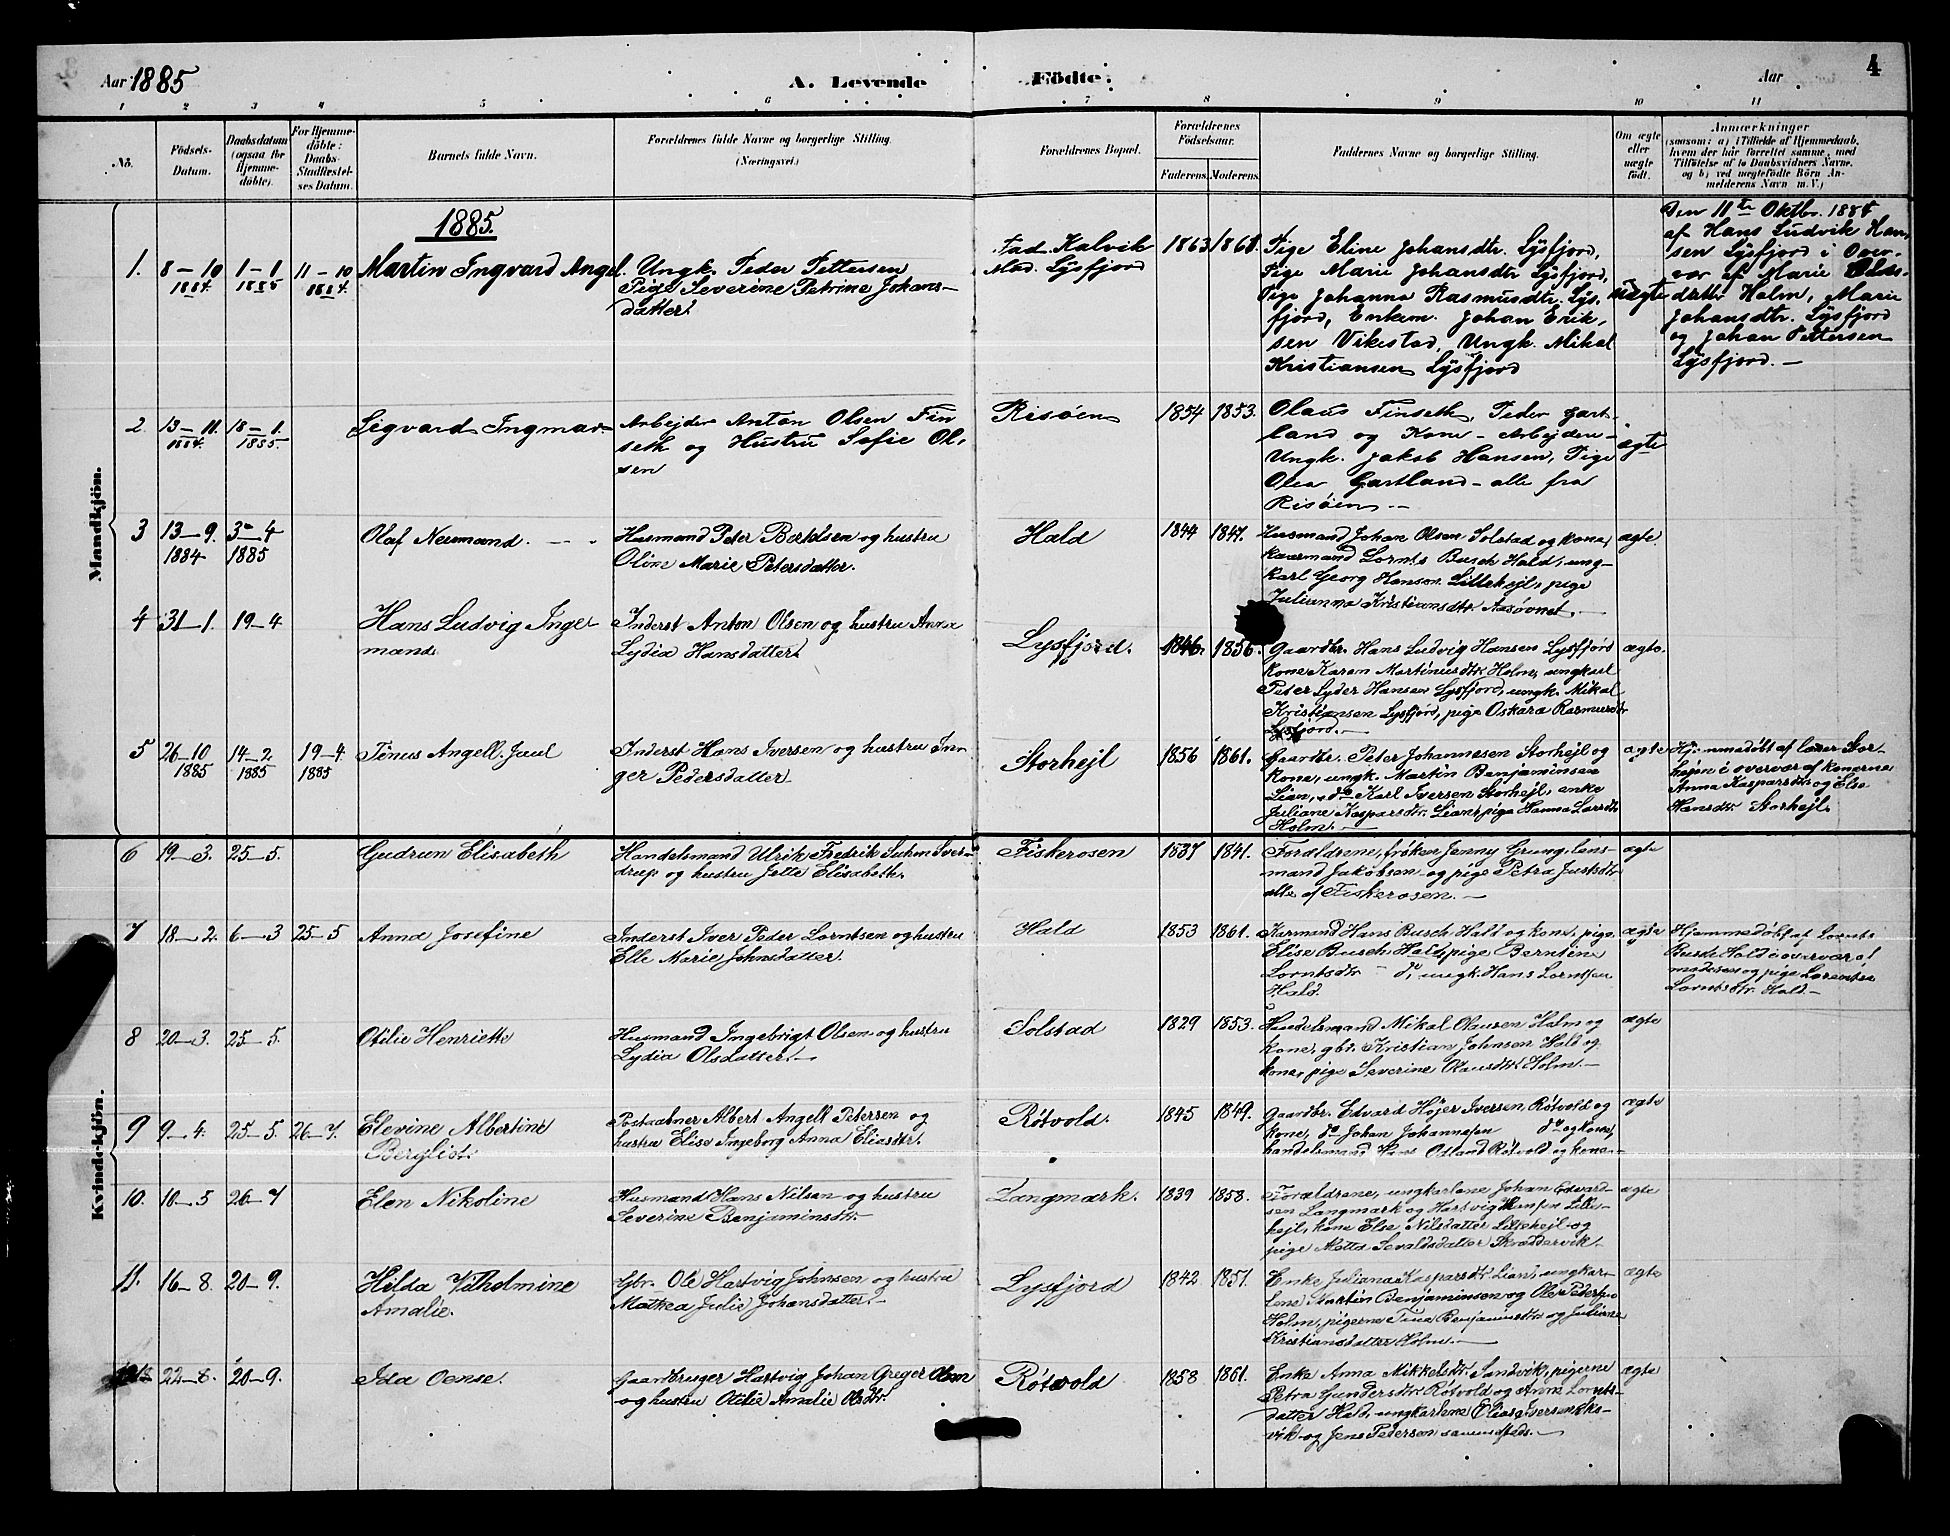 Aar 1885
A. Levende Födte.
Aar
4
1 2 3 4 5 6 7 8 9 10 11
Nö.
Födsels-
Datum.
Daabsdatum
(ogsaa for
Hjemme-
döbte).
For Hjemme-
döbte:
Daabs-
Stadfæstel-
ses Datum.
Barnets fulde Navn.
Forældrenes fulde Navne og borgerlige Stilling.
(Næringsvei.)
Forældrenes Bopæl.
Forældrenes
Födselsaar.
Faderens. Moderens.
Faddernes Navne og borgerlige Stilling.
Om ægte
eller
uægte
födt.
Anmærkninger
(saasom: a) i Tilfælde af Hjemmedaab,
hvem der har forrettet samme, med
Tilföielse af to Daabsvidners Navne.
og b) ved uægtefödte Börn An-
melderens Navn m. V.)
Mandkjön.
1885.
1. 8–10 1884 1–1 1885 11–10 1884.
Martin Ingvard Angel.
Ungk. Peder Pettersen
Pige Severine Petrine Johans-
datter
Fad. Kalvik
Lysfjord
1863 1861.
Pige Eline Johansdtr. Lysfjord,
Pige Marie Johansdtr Lysfjord,
Pige Johanna Rasmusdtr. Lys-
fjord, Enkem. Johan Erik-
sen Vikestad, Ungk. Mikal
Kristiansen Lysfjord
uægte
Den 11te Oktbr. 1884
af Hans Ludvik Han-
sen Lysfjord i Over-
vær af Marie
datter Holm, Marie
Johansdtr. Lysfjord
og Johan Pettersen
Lysfjord. –
2. 13–11. 1884 18–1. 1885.
Sigvard Ingmar
Arbejder Anton Olsen Fin
seth og Hustru Sofie Ol-
sen
Risöen
1854 1853.
Olaus Finseth, Peder Gart-
land og Kone – Arbejdere –
Ungk. Jakob Hansen, Pige
Olea Gartland – alle fra
Risöen. –
ægte
3 13–9. 1884 3–4 1885
Olaf Neumand. – –
Husmand Peter Bertelsen og hustru
Oline Marie Petersdatter.
Hald
1844 1847.
Husmand Johan Olsen Solstad og kone,
kaarmand Lornts Busch Hald, ung-
karl Georg Hanson Lillehejl, pige
Julianna Kristiansdtr.
ægte.
4 31–1. 19–4
Hans Ludvig Inge
mand.
Inderst Anton Olsen og hustru Anna
Lydia Hansdatter.
Lysfjord.
1846. 1856.
Gaardbr. Hans Ludvig Hansen Lysfjord
kone Karen Martinusdtr. Holm, ungkarl
Peter Lyder Hansen Lysfjord, ungk. Mikal
Kristiansen Lysfjord, pige Oskara Rasmusdtr
Lysfjord. –
ægte.
5 26–10 1885 14–2 1885 19–4 1885
Tinus Angell Juul
Inderst Hans Iversen og hustru In-
ger Pedersdatter
Storhejl
1856 1861.
Gaardbr. Peter Johannesen Storhejl og
kone, ungk. Martin Benjaminsen
Lian, do Karl Iversen Storhejl, enke
Juliane Kaspersdtr. Lian, pige Hanna Larsdtr
Holm. –
ægte
Hjemmedøbt af lærer Stor-
i overvær af konerne
Anna Kaspersdtr. og Else
Hansdtr Storhejl.
Kvindekjön.
6 19–3. 25–5.
Gudrun Elisabeth
Handelsmand Ulrik Fredrik Suhm Sver-
drup og hustru Jette Elisabeth.
Fiskerosen
1837 1841.
Forældrene, frøken Jenny Grung, lens-
mand Jakobsen og pige Petra Justsdtr
alle af Fiskerosen. –
ægte
7 18–2. 6–3 25–5
Anna Josefine
Inderst Iver Peder Lorntsen og hustru
Elle Marie Johnsdatter.
Hald
1853 1861.
Karmand Hans Busch Hald og kone, pige
Elise Busch Hald, pige Berntine
Lorntsdtr – do, ungk. Hans Lorntsen
Hald.
ægte
Hjemmedøbt af Lornts
Hald i overvær af
moderen og pige Lorentse
Lorntsdtr. Hald. –
8 20–3. 25–5.
Otilie Henriette
Husmand Ingebrigt Olsen og hustru
Lydia Olsdatter. –
Solstad
1829 1853.
Handelsmand Mikal Olausen Holm og
kone, gbr. Kristian Johnsen Hald og
kone, pige Severine Olausdtr. Holm. –
ægte
9 9–4. 25–5. 26–7
Elevine Albertine
Bergliot.
Postaabner Albert Angell Petersen og
hustru Elise Ingeborg Anna Eliasdtr.
Røtvold.
1845 1849.
Gaardbr. Edvard Højer Iversen Røtvold og
kone, do Johan Johannesen do og kone,
handelsmand Hans Røtvold og kone.
ægte
10. 10–5 26–7
Elen Nikoline
Husmand Hans Nilsen og hustru
Severine Benjaminsdtr.
Langmark.
1839 1858.
Forældrene, ungkarlene Johan Edvard-
sen Langmark og Hartvig Hansen Lille-
hejl, kone Else Nilsdatter Lillehejl og
pige Metta Sevaldsdatter Skræddervik. –
ægte
11. 16–8. 20–9.
Hilda Vilhelmine
Amalie.
Gbr. Ole Hartvig Johnsen og hustru
Mathea Julie Johansdatter. –
Lysfjord
1842 1857.
Enke Juliana Kaspersdtr. Lian, ungkar-
lene Martin Benjaminsen og Ole Pedersen
Holm, pigerne Tina Benjaminsdtr. og Juliane
Kristiansdatter Holm. –
ægte
12 22–8. 20–9.
Ida Oense.
Gaardbruger Hartvig Johan Greger Olsen
og hustru Otilie Amalie Olsdtr.
Røtvold
1858 1861.
Enke Anna Mikkelsdtr. Sandvik, pigerne
Petra Gundersdtr. Røtvold og Anne Lornts-
datter Hald, ungkarlene Elias Iversen
vik og Jens Pedersen sammesteds. –
ægte